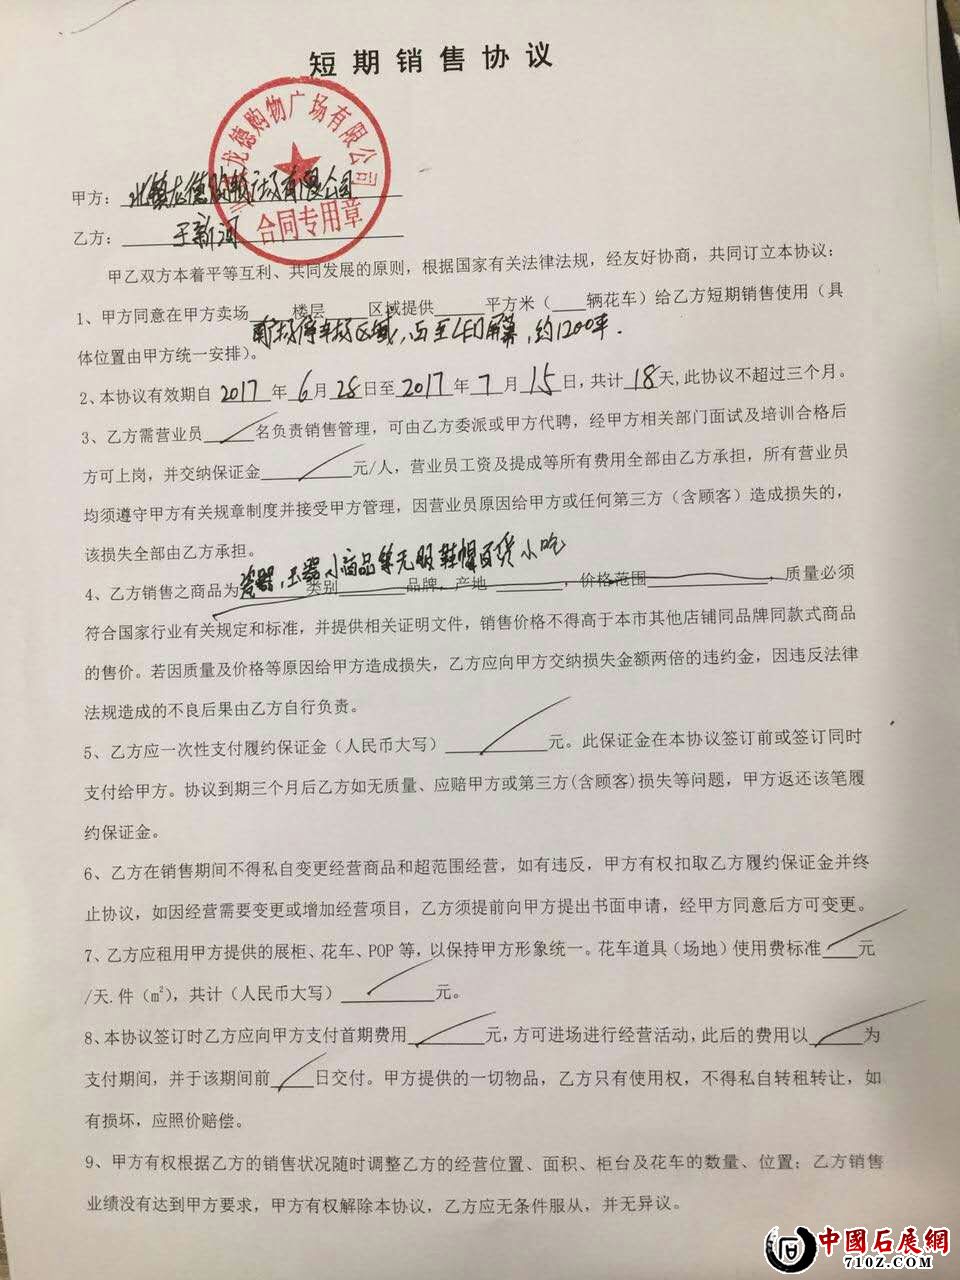 短期销售协议
龙德购物广场有限公司
合同专用章
甲方：北镇龙德购物广场有限公司
乙方：于新河
甲乙双方本着平等互利、共同发展的原则，根据国家有关法律法规，经友好协商，共同订立本协议：
1、甲方同意在甲方卖场____楼层____区域提供____平方米（__辆花车）给乙方短期销售使用（具
停车场区域，占至LED屏幕，约1200平.
体位置由甲方统一安排）。
2、本协议有效期自2017年6月28日至2017年7月15日，共计18天,此协议不超过三个月。
3、乙方需营业员/名负责销售管理，可由乙方委派或甲方代聘，经甲方相关部门面试及培训合格后
方可上岗，并交纳保证金/元/人，营业员工资及提成等所有费用全部由乙方承担，所有营业员
均须遵守甲方有关规章制度并接受甲方管理，因营业员原因给甲方或任何第三方（含顾客）造成损失的，
该损失全部由乙方承担。
瓷器，玉器，小商品等无服鞋帽百货小吃
4、乙方销售之商品为____类别____品牌，产地____，价格范围____，质量必须
符合国家行业有关规定和标准，并提供相关证明文件，销售价格不得高于本市其他店铺同品牌同款式商品
的售价。若因质量及价格等原因给甲方造成损失，乙方应向甲方交纳损失金额两倍的违约金，因违反法律
法规造成的不良后果由乙方自行负责。
5、乙方应一次性支付履约保证金（人民币大写）/元。此保证金在本协议签订前或签订同时
支付给甲方。协议到期三个月后乙方如无质量、应赔甲方或第三方(含顾客)损失等问题，甲方返还该笔履
约保证金。
6、乙方在销售期间不得私自变更经营商品和超范围经营，如有违反，甲方有权扣取乙方履约保证金并终
止协议，如因经营需要变更或增加经营项目，乙方须提前向甲方提出书面申请，经甲方同意后方可变更。
7、乙方应租用甲方提供的展柜、花车、POP等，以保持甲方形象统一。花车道具（场地）使用费标准/元
/天.件（m²），共计（人民币大写）/元。
8、本协议签订时乙方应向甲方支付首期费用/元，方可进场进行经营活动，此后的费用以/为
支付期间，并于该期间前/日交付。甲方提供的一切物品，乙方只有使用权，不得私自转租转让，如
有损坏，应照价赔偿。
9、甲方有权根据乙方的销售状况随时调整乙方的经营位置、面积、柜台及花车的数量、位置；乙方销售
业绩没有达到甲方要求，甲方有权解除本协议，乙方应无条件服从，并无异议。
中國石展網
71OZ.COM